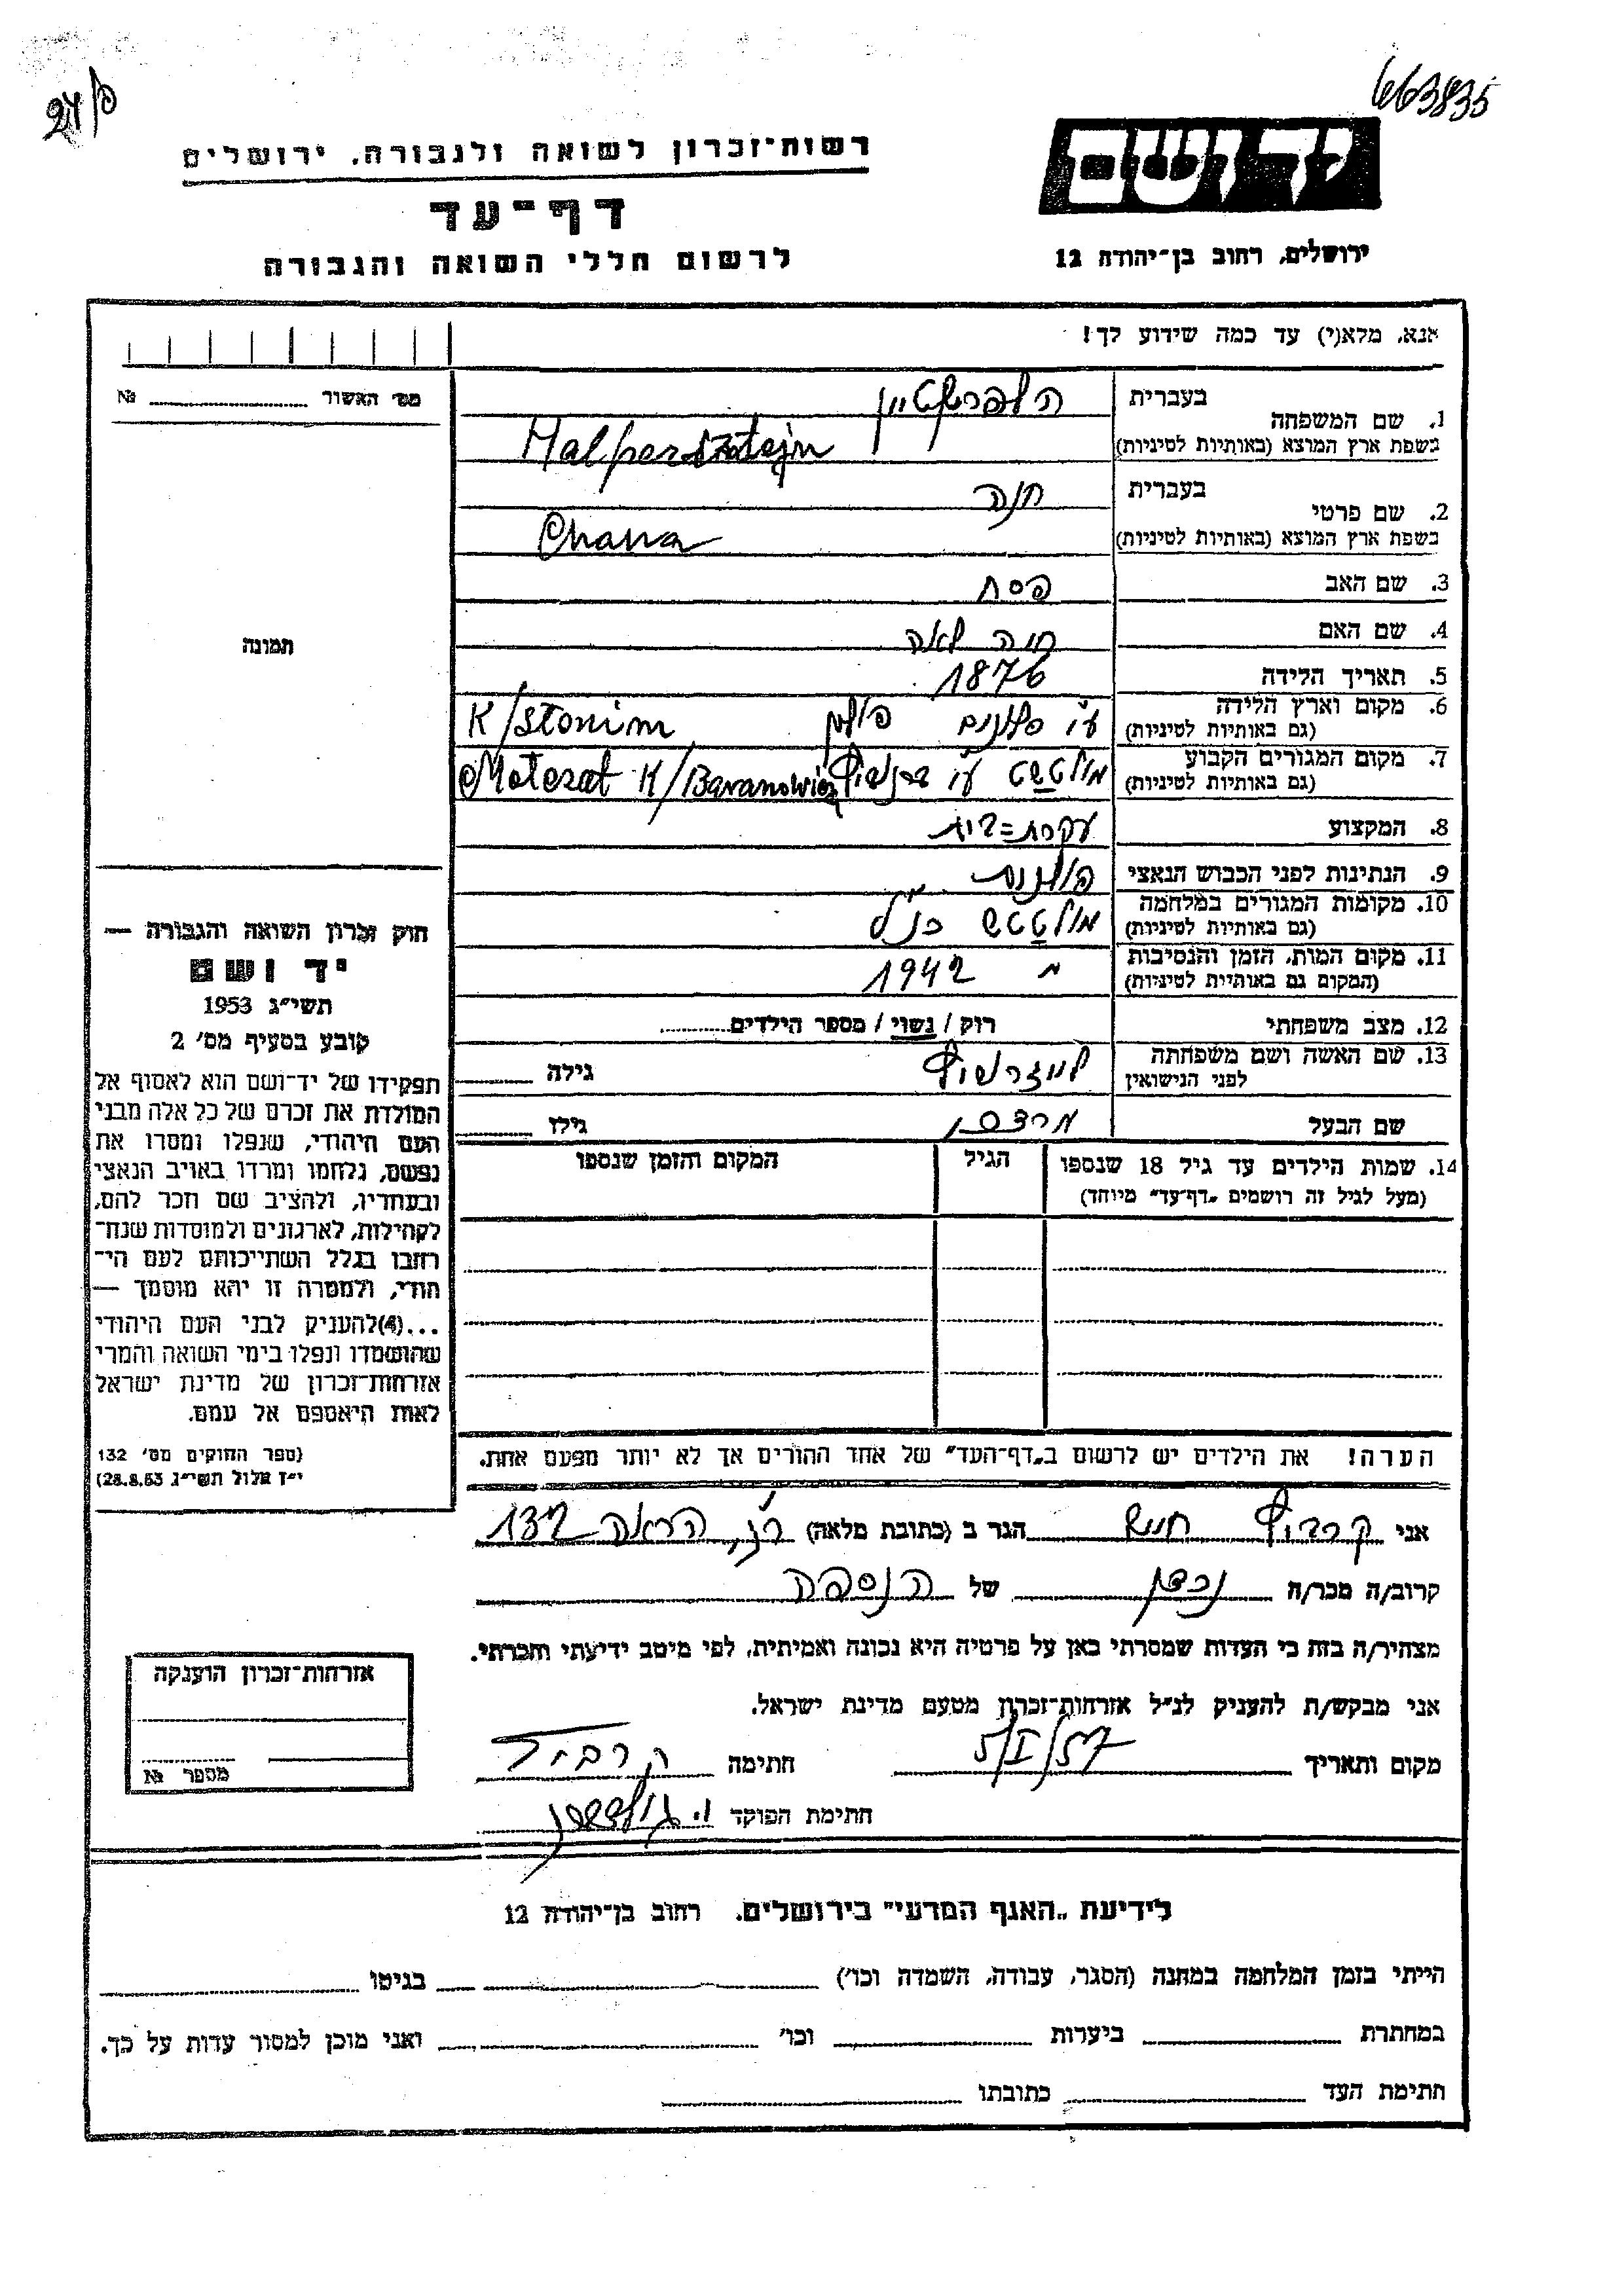 663835
רשות־זכרון לשואה ולגבורה, ירושלים
דף־עד
לרשום חללי השואה והגבורה
יד ושם
ירושלים, רחוב בן־יהודה 12
אנא, מלא(י) עד כמה שידוע לך!
מס׳ האשור № 
1. שם המשפחה בעברית הלפרשטיין
בשפת ארץ המוצא (באותיות לטיניות) Halpersztejn
2. שם פרטי בעברית חנה
בשפת ארץ המוצא (באותיות לטיניות) Chana
3. שם האב פסח
4. שם האם חיה לאה
5. תאריך הלידה 1876
6. מקום וארץ הלידה (גם באותיות לטיניות) ע״י סלונים פולין K/Stonim
7. מקום המגורים הקבוע (גם באותיות לטיניות) ע״י K/Baranowicz
8. המקצוע עקרת=בית
9. הנתינות לפני הכבוש הנאצי פולנית
10. מקומות המגורים במלחמה (גם באותיות לטיניות) כנ״ל
11. מקום המות, הזמן והנסיבות (המקום גם באותיות לטיניות) 1942
12. מצב משפחתי רוק / נשוי / מספר הילדים
13. שם האשה ושם משפחתה לפני הנישואין גילה
שם הבעל גילו
14. שמות הילדים עד גיל 18 שנספו (מעל לגיל זה רושמים „דף־עד״ מיוחד) הגיל המקום והזמן שנספו
תמונה
חוק זכרון השואה והגבורה —
יד ושם
תשי״ג 1953
קובע בסעיף מס׳ 2
תפקידו של יד־ושם הוא לאסוף אל
המולדת את זכרם של כל אלה מבני
העם היהודי, שנפלו ומסרו את
נפשם, נלחמו ומרדו באויב הנאצי
ובעוזריו, ולהציב שם וזכר להם,
לקהילות, לארגונים ולמוסדות שנח־
רבו בגלל השתייכותם לעם הי־
הודי, ולמטרה זו יהא מוסמך —
...(4)להעניק לבני העם היהודי
שהושמדו ונפלו בימי השואה והמרי
אזרחות־זכרון של מדינת ישראל
לאות היאספם אל עמם.
(ספר החוקים מס׳ 132
י״ז אלול תשי״ג 28.8.53)
הערה! את הילדים יש לרשום ב„דף־העד״ של אחד ההורים אך לא יותר מפעם אחת.
אני חיים הגר ב (כתובת מלאה) ר״ג, הרא״ה 132
קרוב/ה מכר/ה נכדן של הנספה
מצהיר/ה בזה כי העדות שמסרתי כאן על פרטיה היא נכונה ואמיתית, לפי מיטב ידיעתי והכרתי.
אני מבקש/ת להעניק לנ״ל אזרחות־זכרון מטעם מדינת ישראל.
מקום ותאריך חתימה
חתימת הפוקד
אזרחות־זכרון הוענקה
מספר №
לידיעת „האגף המדעי״ בירושלים, רחוב בן־יהודה 12
הייתי בזמן המלחמה במחנה (הסגר, עבודה, השמדה וכו׳) בגיטו
במחתרת ביערות וכו׳ ואני מוכן למסור עדות על כך.
חתימת העד כתובתו